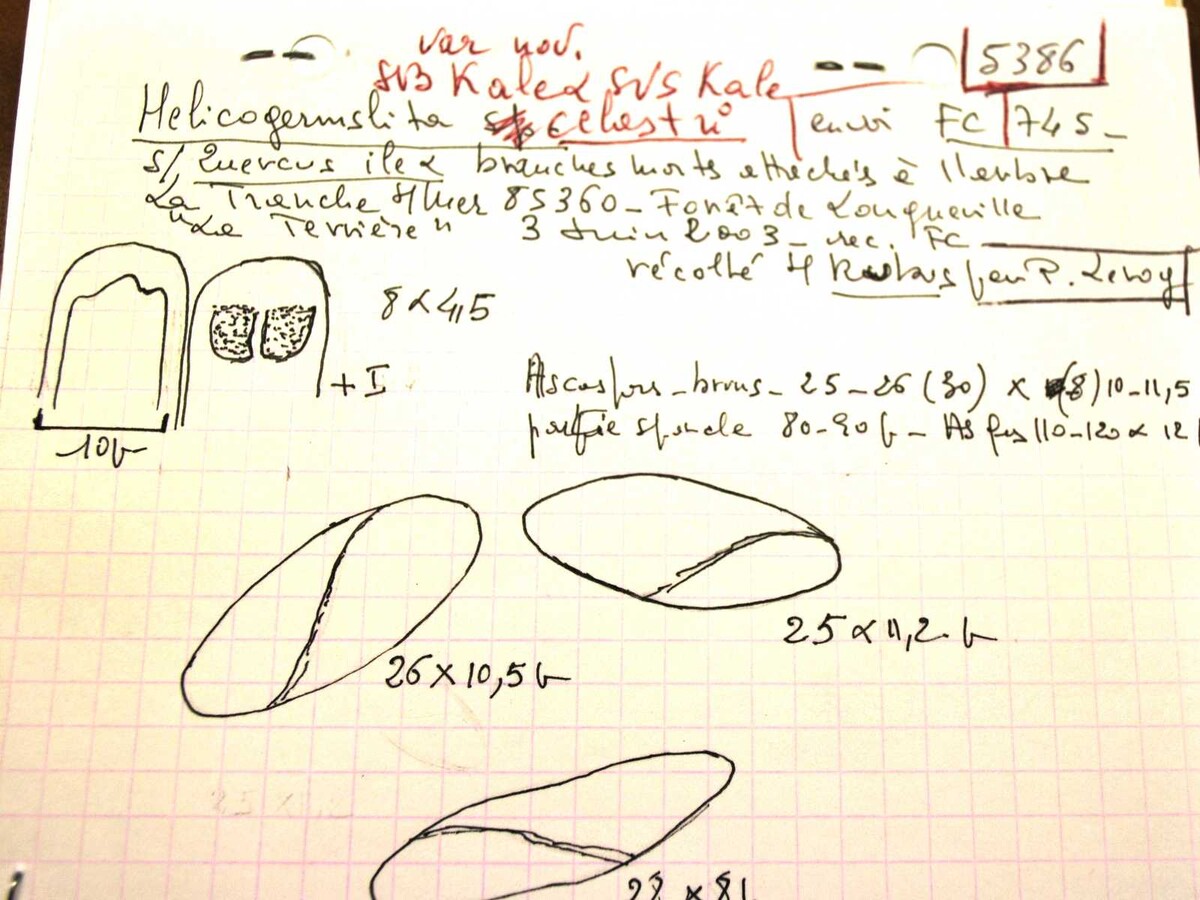 var nov.
5386
SVB Kale α SVS Kale
Helicogermslita celastri envoi FC 745
s/ Quercus ilex branches morts attachés à l'arbre
La Tranche s/Mer 85360 - Forêt de Longueville
"La Terrière" 3 Juin 2003 - rec. FC
récolté s/ Rubus par P. Leroy
8 x 4,5
+ I
Ascospores - bruns - 25-26 (30) x (8) 10-11,5
partie sporale 80-90 µ - As 110-120 x 12
10 µ
25 x 11,2 µ
26 x 10,5 µ
28 x 8 µ